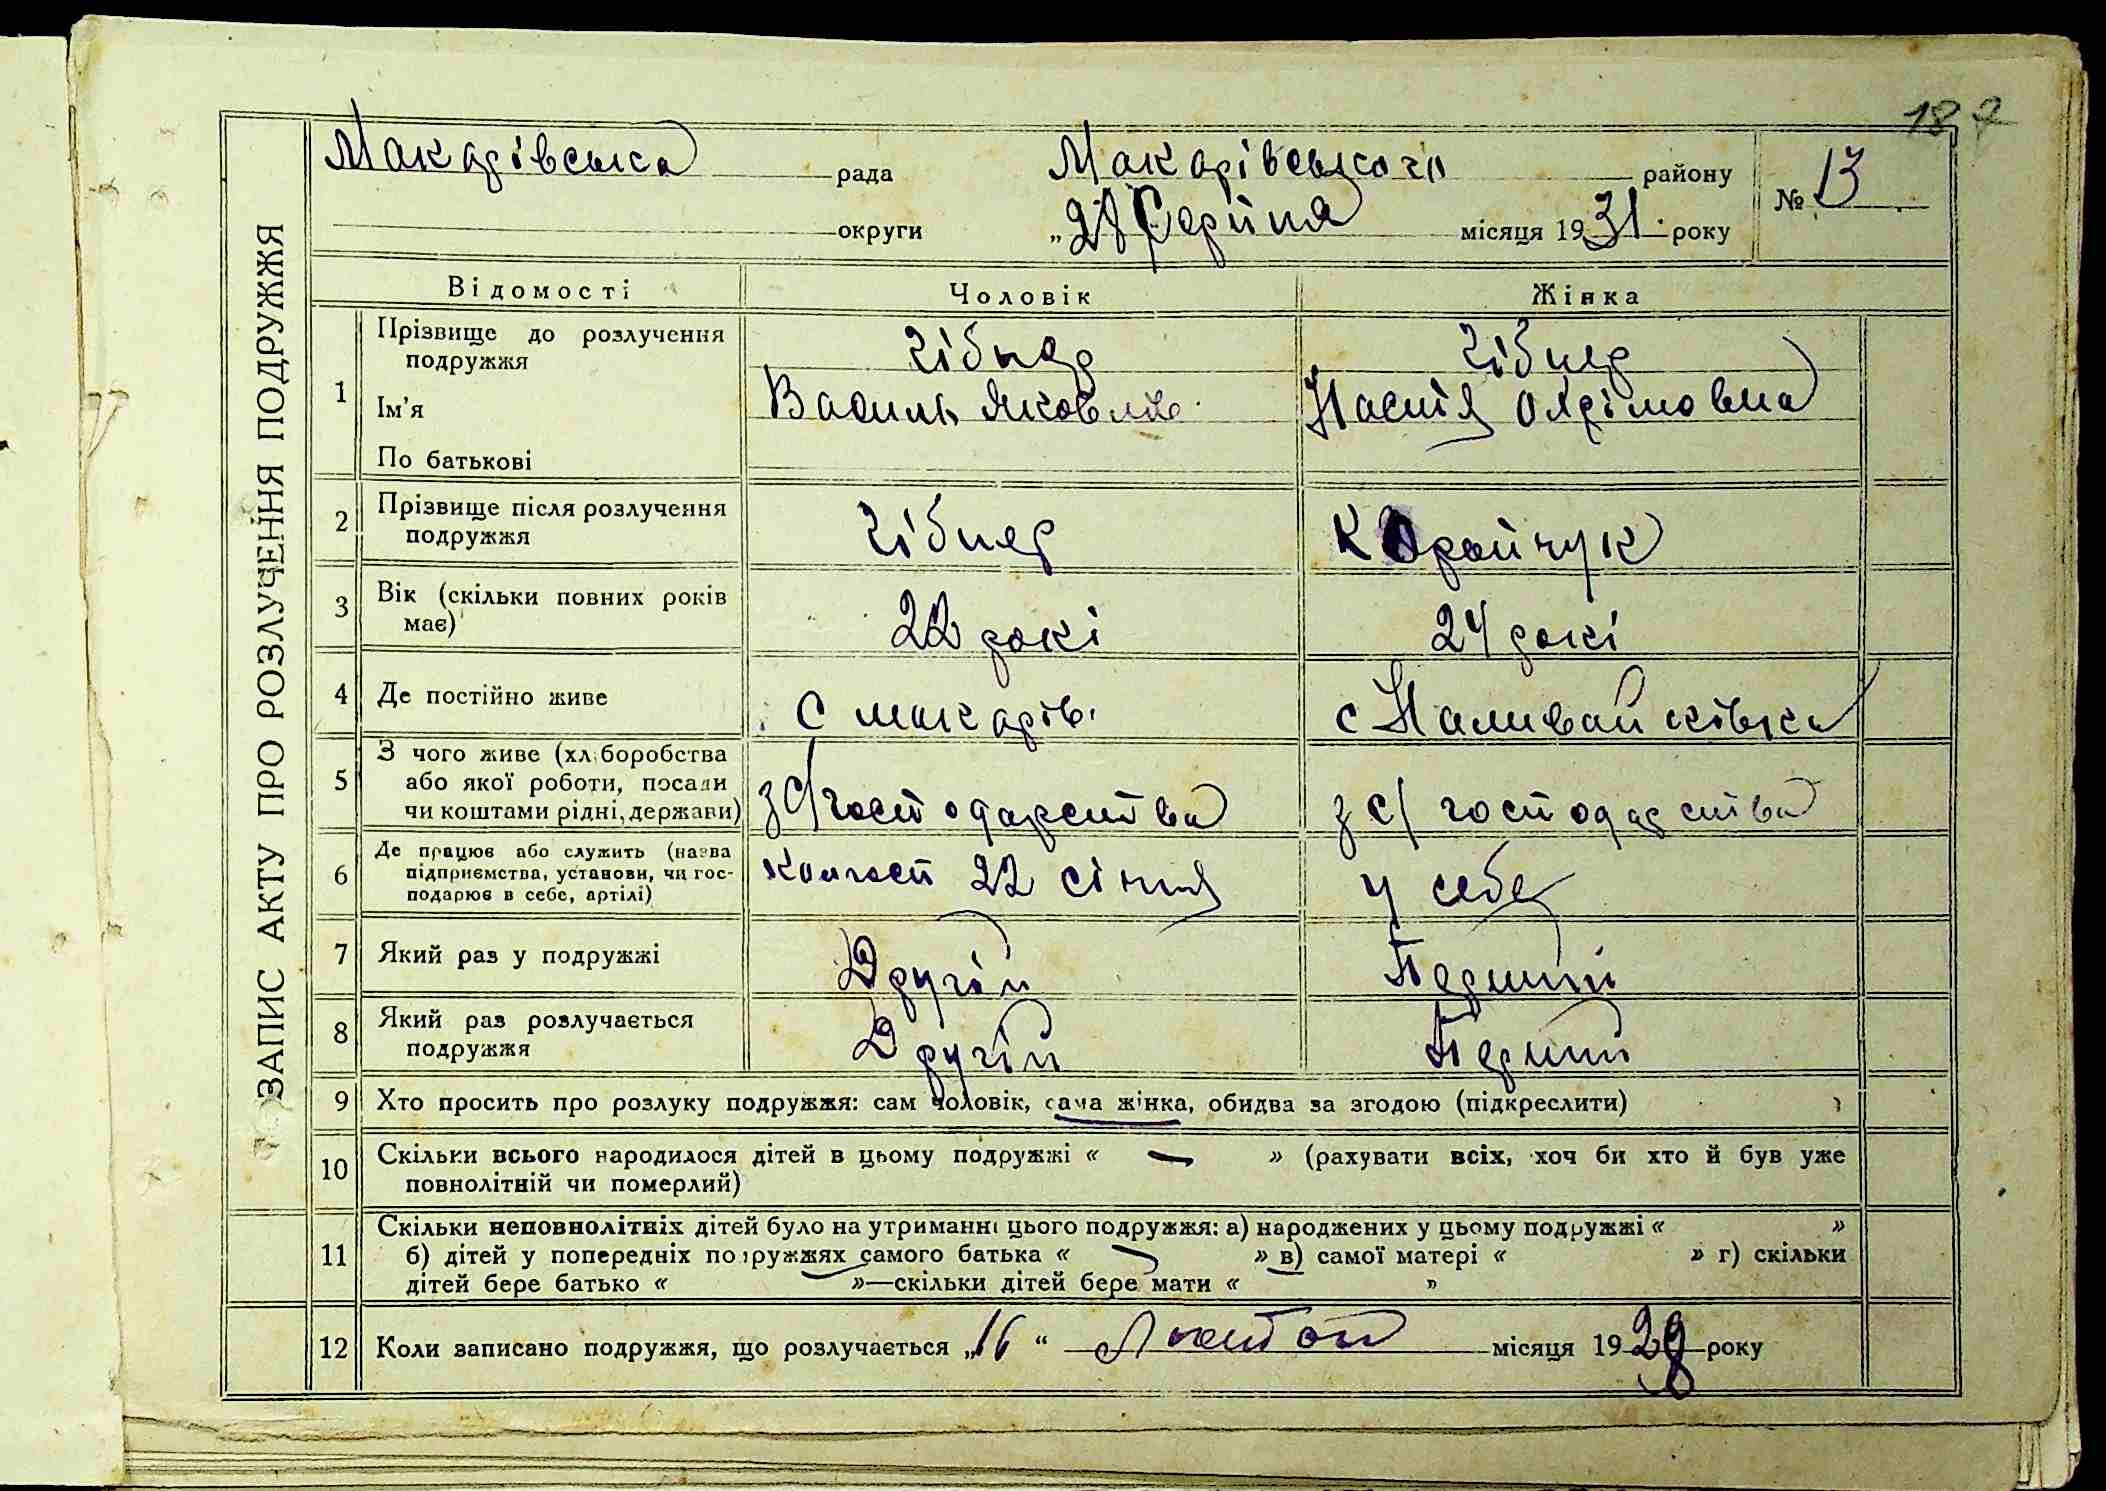 187
Макарівська рада Макарівського району № 13
округи „28 Серпня місяця 1931 року
ЗАПИС АКТУ ПРО РОЗЛУЧЕННЯ ПОДРУЖЖЯ
Відомості Чоловік Жінка
1 Прізвище до розлучення подружжя Кібнер Кібнер
Ім'я Василь Яковлев Настія
По батькові
2 Прізвище після розлучення подружжя Кібнер Корайчук
3 Вік (скільки повних років має) 22 рокі 24 рокі
4 Де постійно живе с макарів с Наливайківка
5 З чого живе (хліборобства або якої роботи, посади чи коштами рідні, держави) з с/господарства з с/господарства
6 Де працює або служить (назва підприємства, установи, чи господарює в себе, артілі) Колгосп 22 січня у себе
7 Який раз у подружжі Другій Перший
8 Який раз розлучається подружжя Другій Перший
9 Хто просить про розлуку подружжя: сам чоловік, сама жінка, обидва за згодою (підкреслити)
10 Скільки всього народилося дітей в цьому подружжі « — » (рахувати всіх, хоч би хто й був уже
повнолітній чи померлий)
11 Скільки неповнолітніх дітей було на утриманні цього подружжя: а) народжених у цьому подружжі « »
б) дітей у попередніх подружжях самого батька « — » в) самої матері « » г) скільки
дітей бере батько « »—скільки дітей бере мати « »
12 Коли записано подружжя, що розлучається „16“ Лютого місяця 1929 року